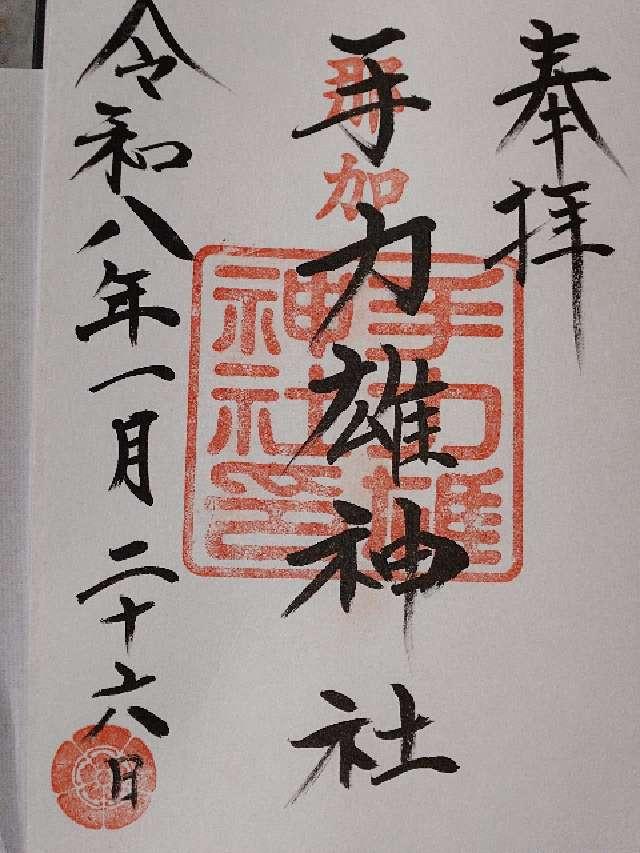 奉拝
那加
手力雄神社
手力雄
神社印
令和八年一月二十六日